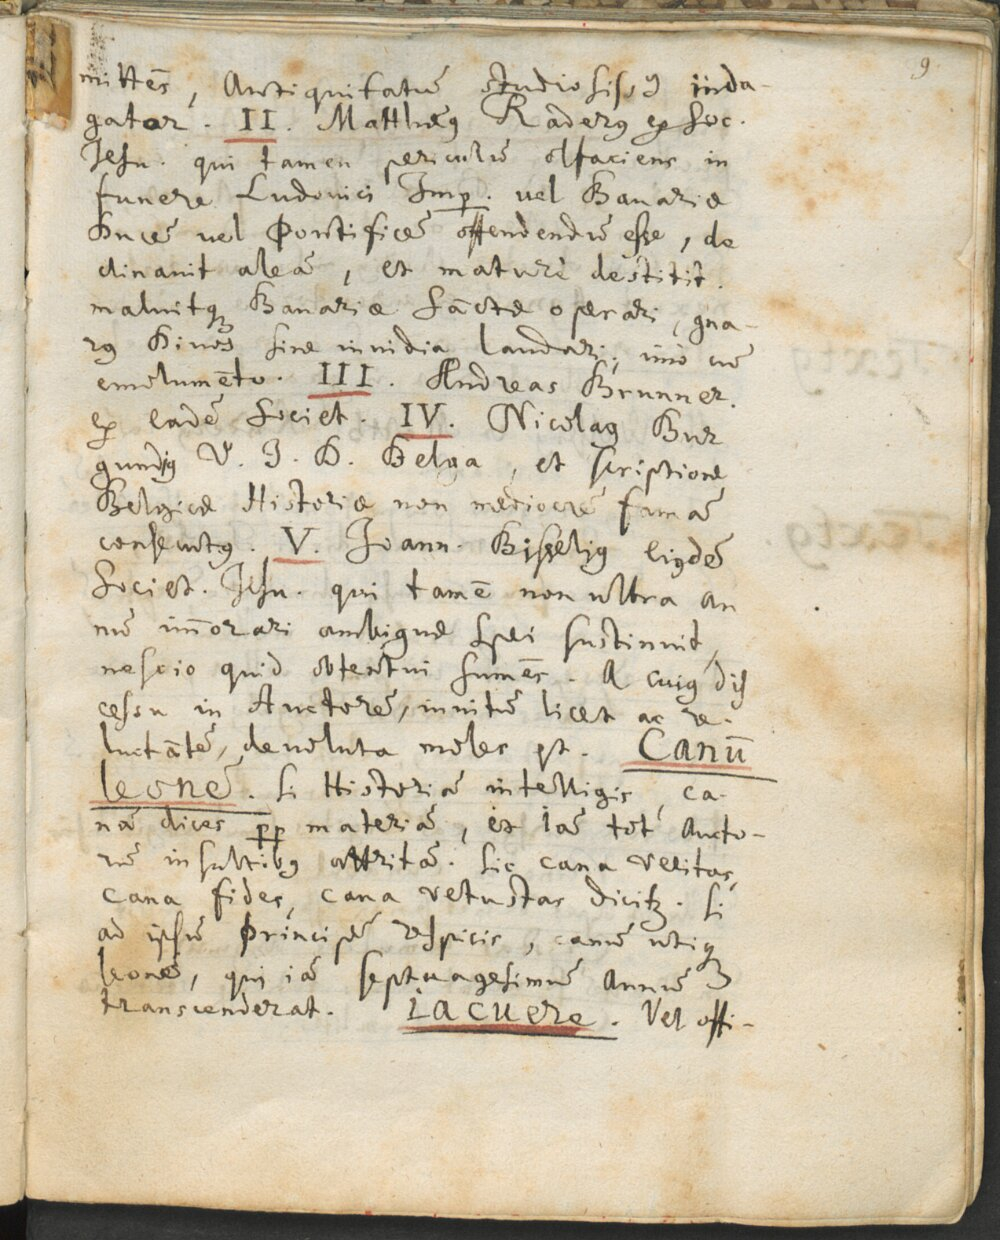 9
mittēs, Antiquitatū studiosissꝰ inda-
gator. II. Matthęꝰ Raderꝰ ex Soc.
Jesu. qui tamen periculū olfaciens in
funere Ludovici Imp. vel Bauariæ
Ducē vel Pontificē offendendū esse, de
clinauit aleā, et maturè destitit.
maluitqꝫ Bauariæ Sāctæ operari, gna-
rꝰ Divos sine inuidia laudari, imò cū
emolumēto. III. Andreas Brunner.
ex eadē Societ. IV. Nicolaꝰ Bur
gundiꝰ V. J. D. Belga, et scriptione
Belgicæ Historiæ non mediocrē famā
consecutꝰ. V. Joann. Bisseliꝰ eiꝰdē
Societ. Jesu. qui tamē non ultra an
nū im̄orari ambiguæ spei sustinuit,
nescio quid obtentui sumēs. A cuiꝰ dis
cessu in Auctorē, inuitū licet ac re-
luctātē, deuoluta moles est. Canū
leonē. Si Historiā intelligis, ca-
nā dices ꝓꝑ materiā, et iā tot Aucto-
rū insultibꝰ attritā. Sic cana veritas,
cana fides, cana vetustas dicitꝛ. Si
ad ipsū Principē respicis, canū utiqꝫ
leonē, qui iā septuagesimū annū
transcenderat. iacuere. Vel offi-